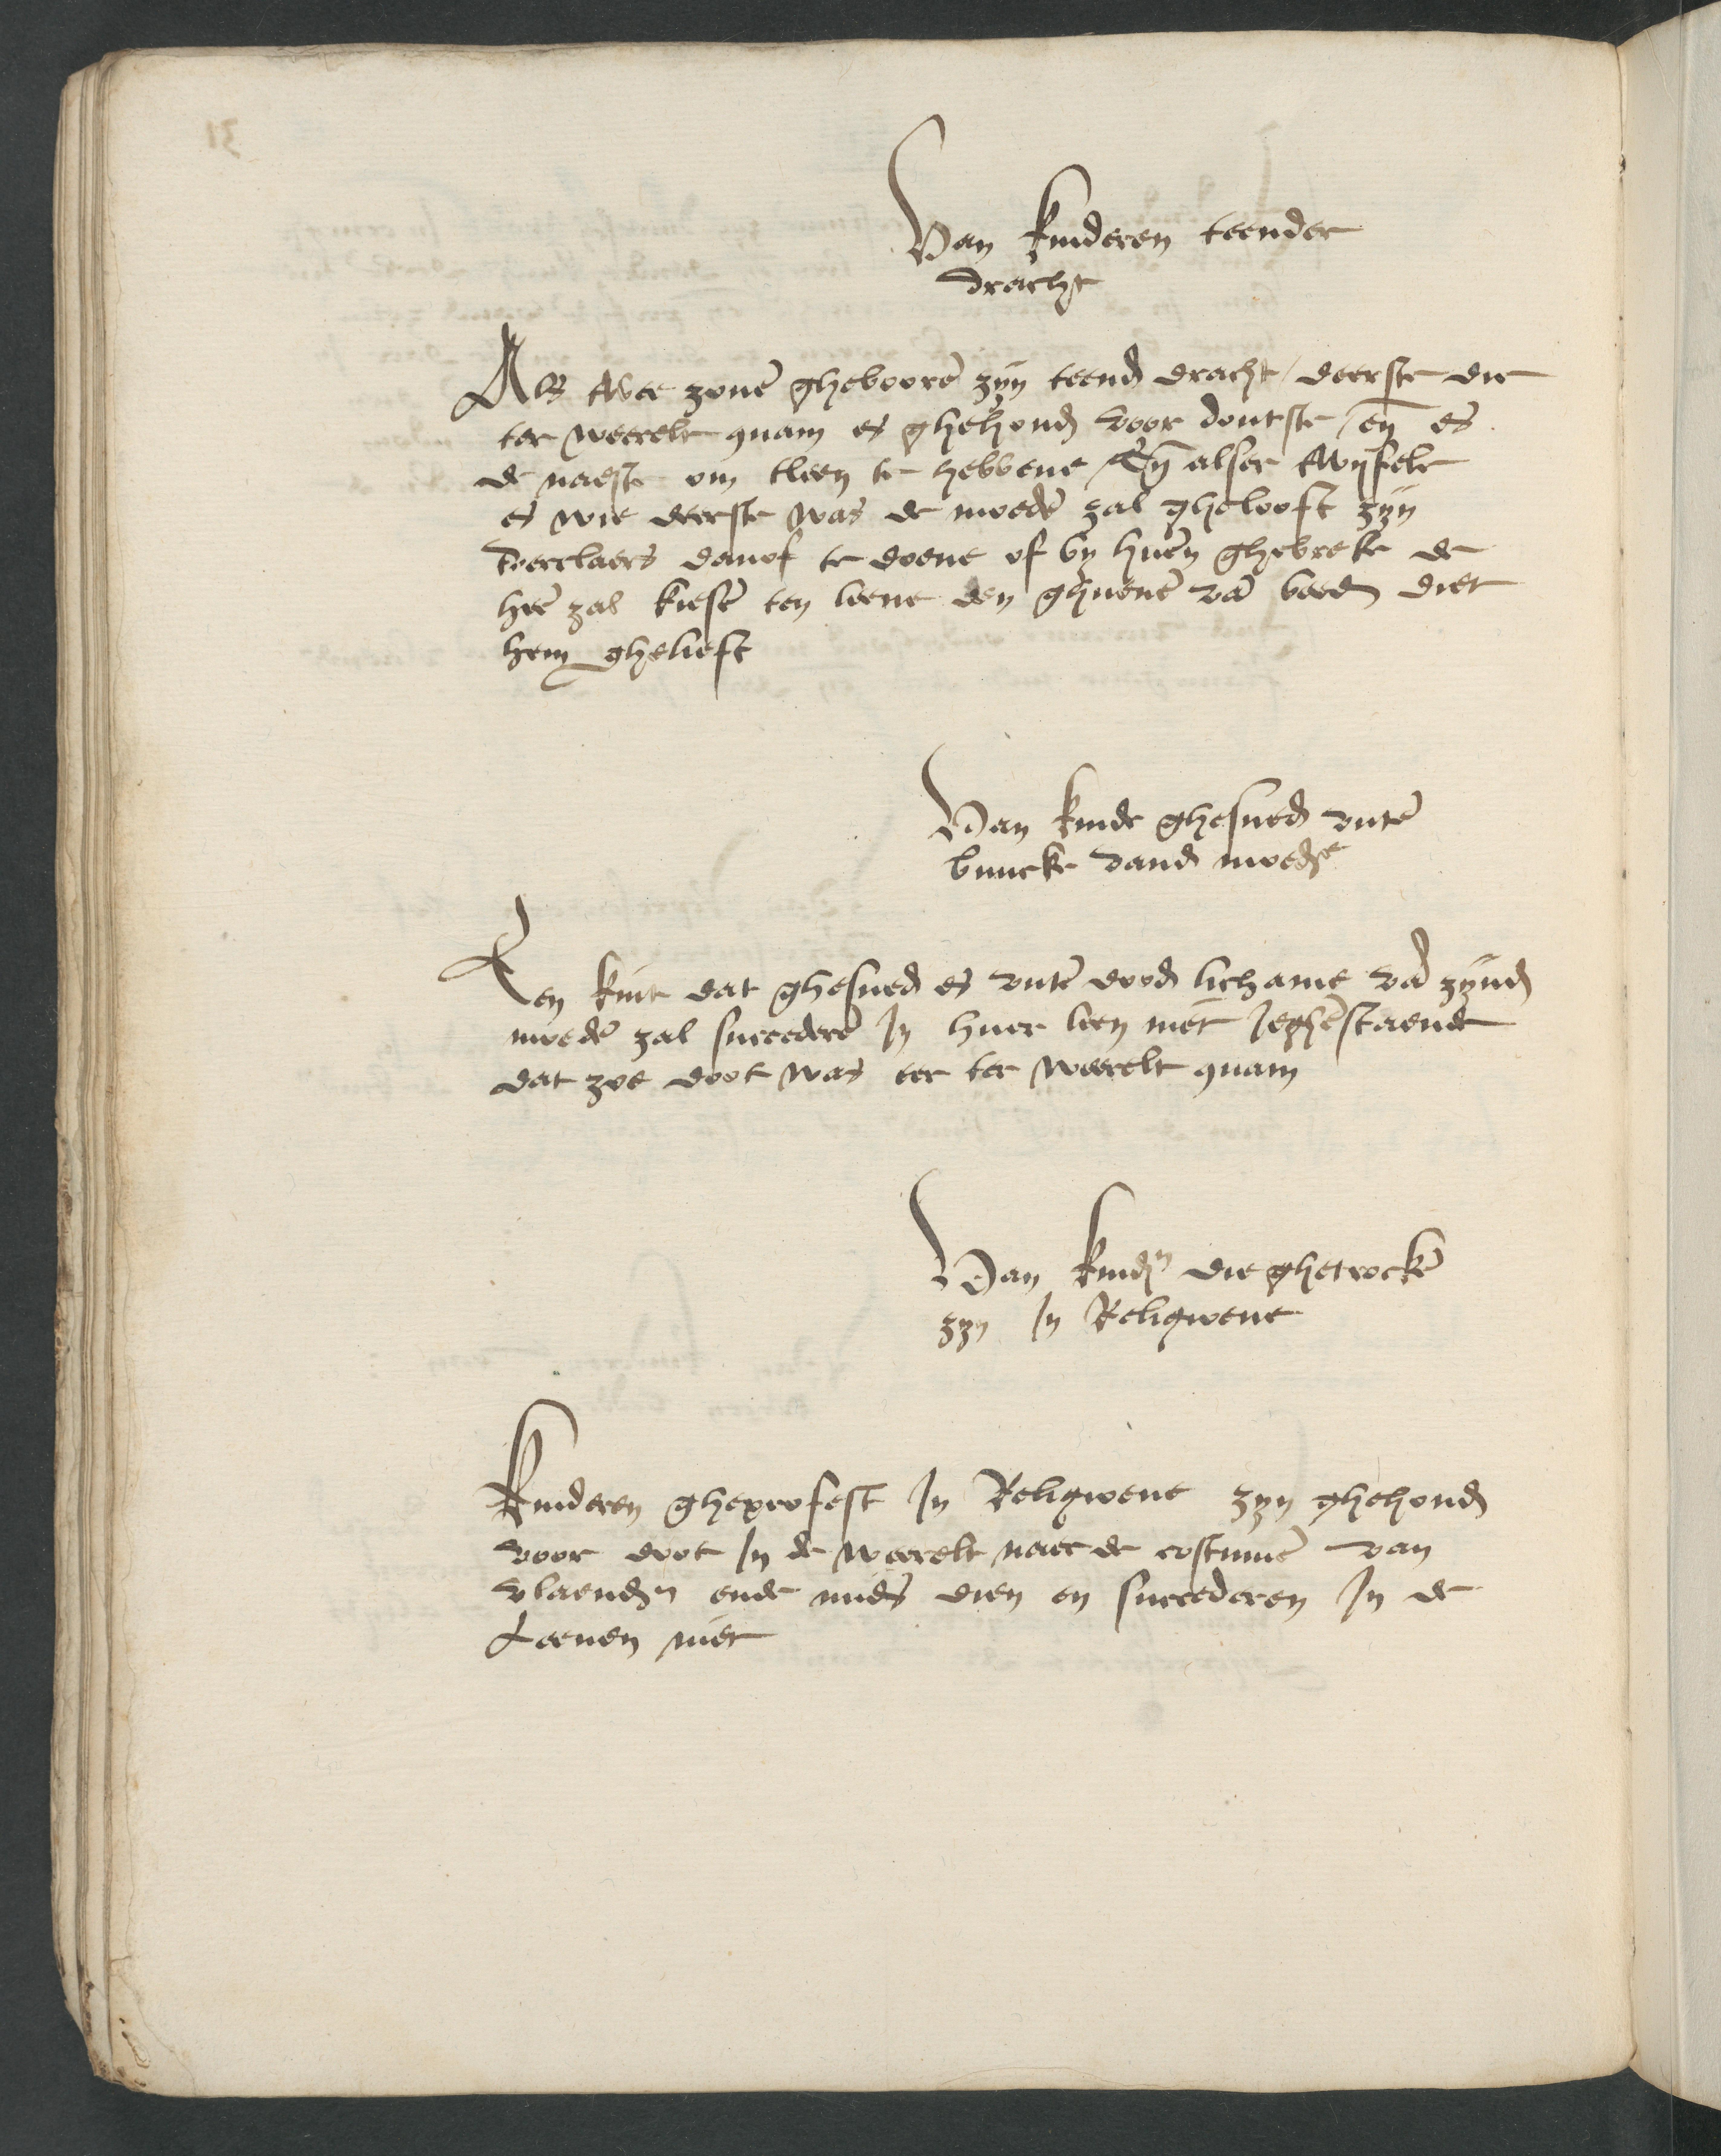 Van kinderen teender
dracht
Als twee zonē gheboorē zyn teend dracht / deerste die
ter weerelt quam es ghehoud voor doutste / eñ es
de naeste om tleen te hebbene / Eñ alser twyfele
es wie deerste was de moedē zal ghelooft zyn
tverclaers danof te doene of by huerē ghebreke de
heē zal kiesē ten leene den ghuenē vā beed diet
hem ghelieft
Van kinde ghesned vutē
buucke vand moedʳe
Een kint dat ghesned es vutē dood lichame vā zynd
moedē zal succederē In huer leen niet Jeghēstaende
dat zoe doot was eer ter weerelt quam
Van kindⁿ die ghetrockē
zyn In Religioene
Kinderen gheprofest In Religioene zyn ghehoud
voor doot In de weerelt naer de costumē van
vlaendⁿ ende mids dien en succederen In de
Leenen niet